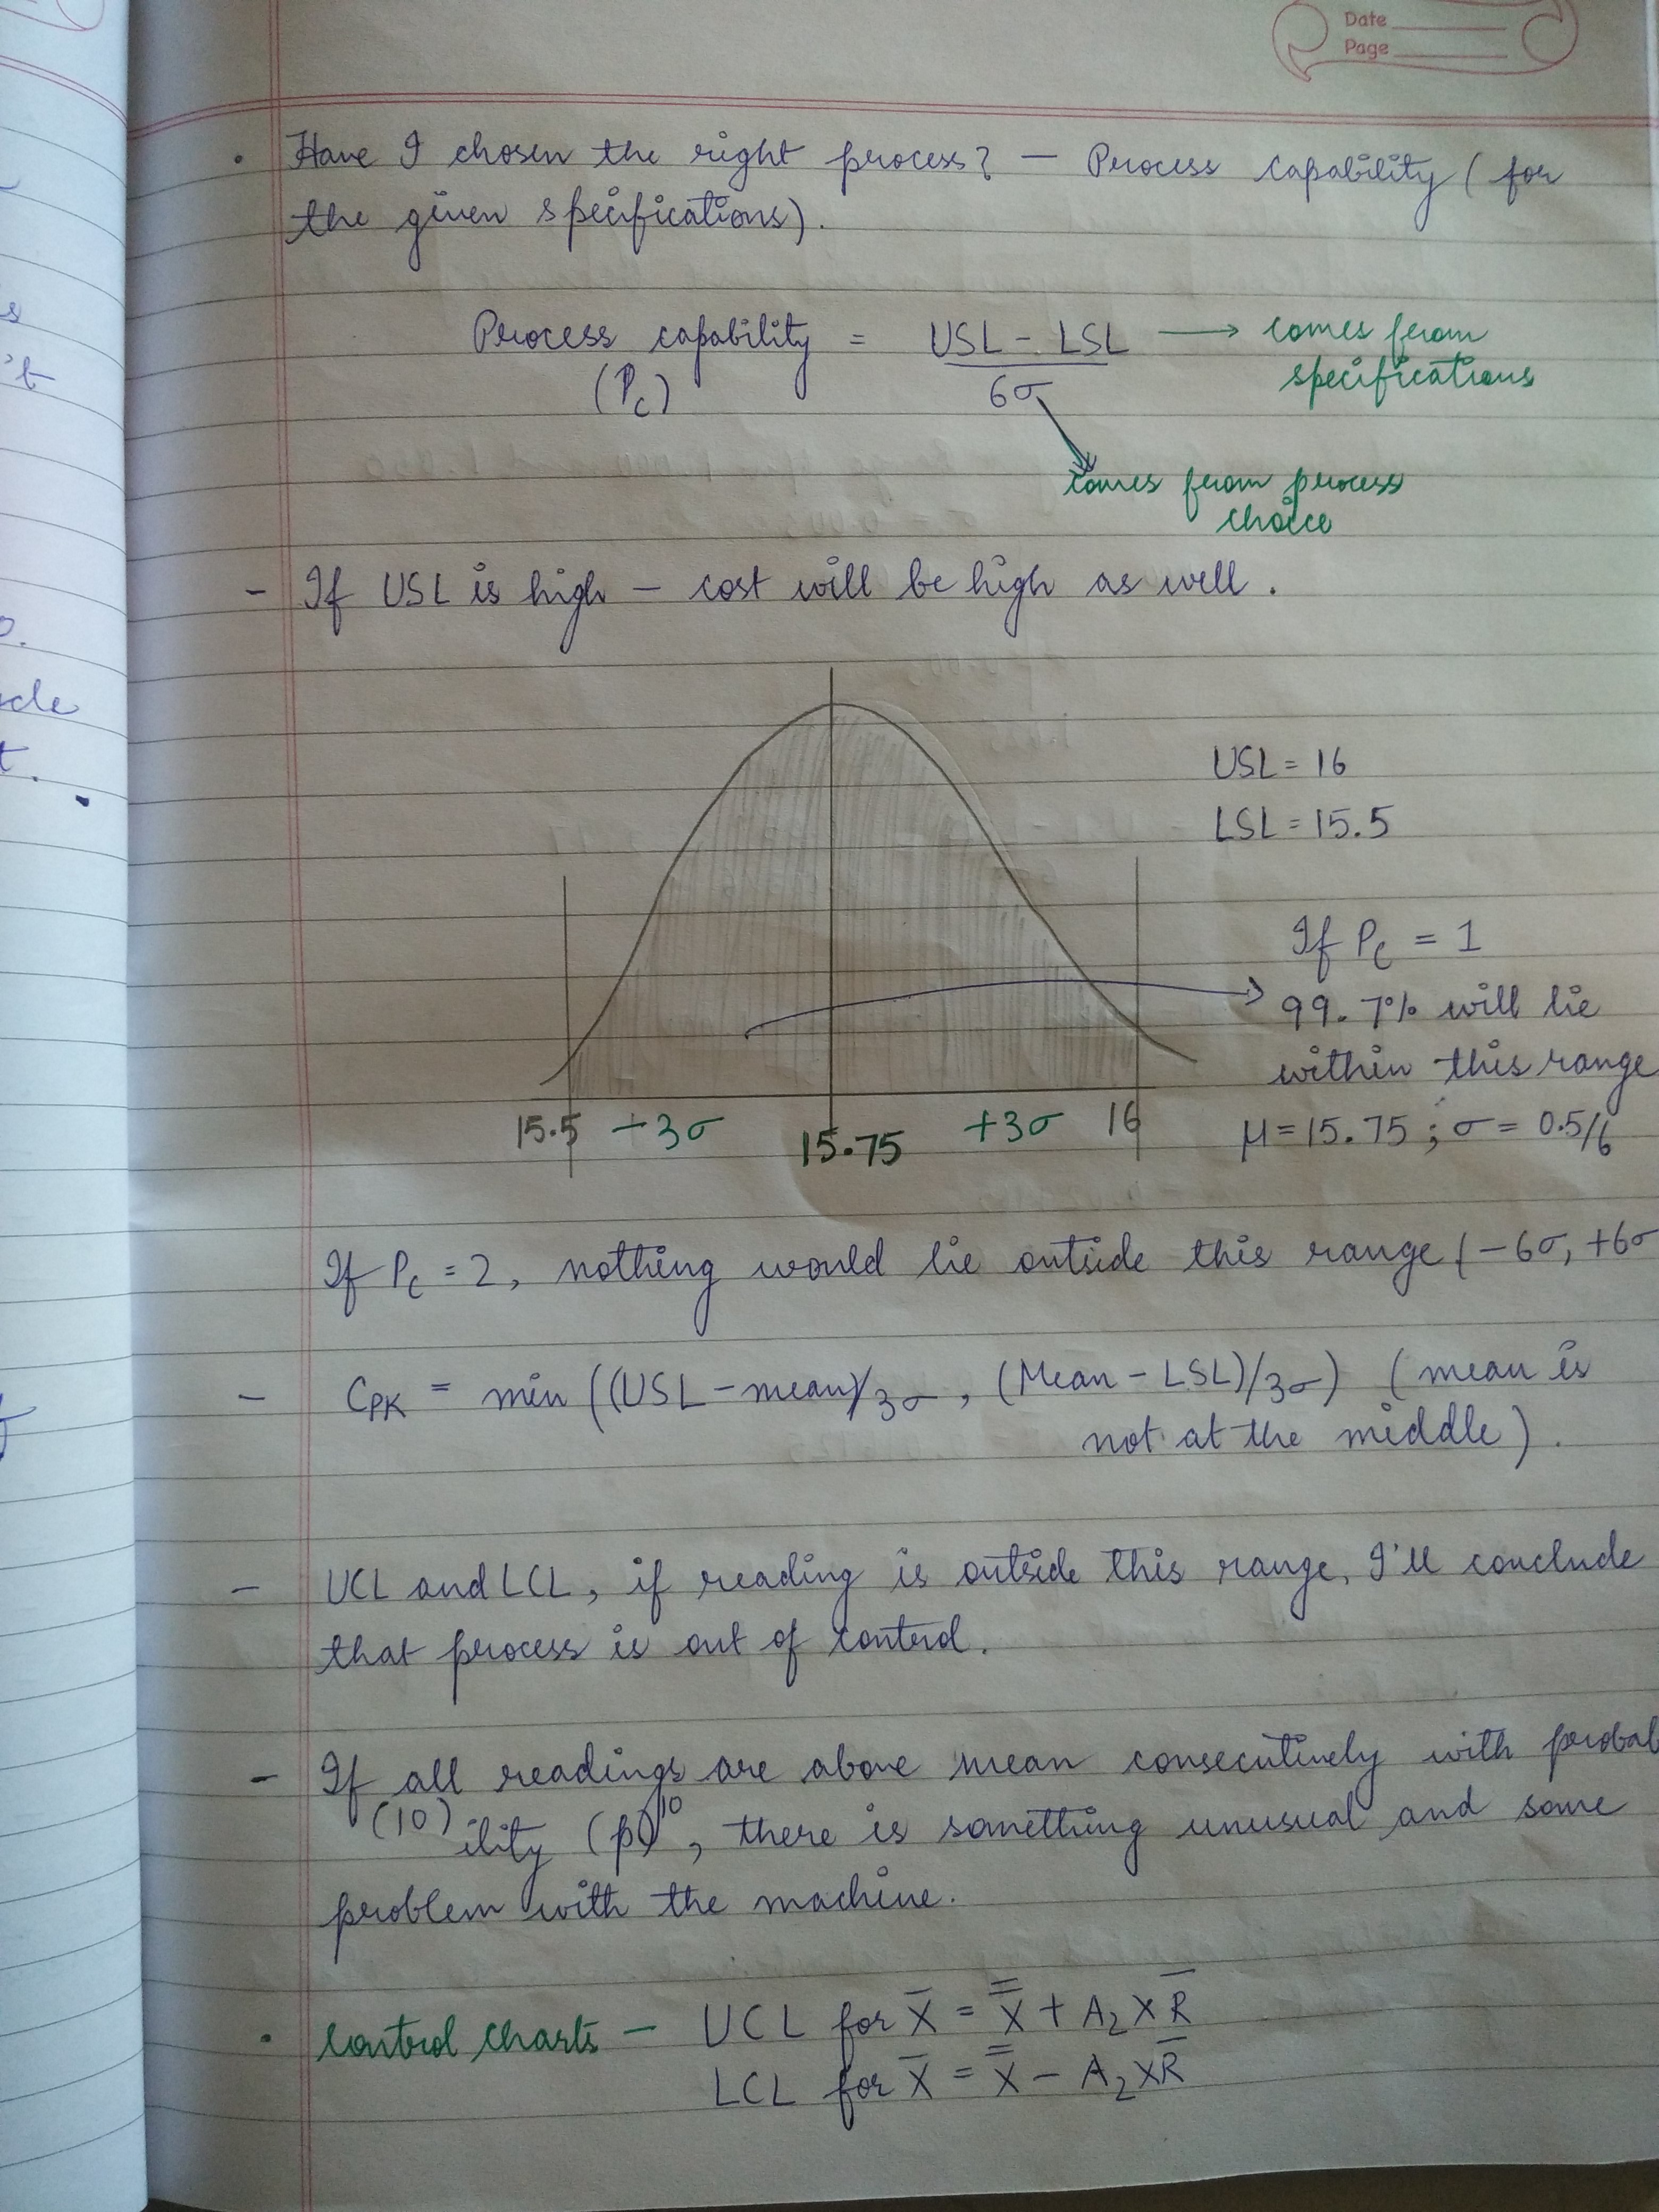 Date
Page
• Have I chosen the right process? – Process capability (for
the given specifications).
Process capability = USL - LSL → comes from
specifications
(Pc) 6σ
comes from process
choice
- If USL is high – cost will be high as well.
USL = 16
LSL = 15.5
If Pc = 1
99.7% will lie
within this range
15.5 -3σ 15.75 +3σ 16
μ = 15.75 ; σ = 0.5/6
If Pc = 2, nothing would lie outside this range (-6σ, +6σ
- CPK = min ((USL - mean)/3σ, (Mean - LSL)/3σ) (mean is
not at the middle).
- UCL and LCL, if reading is outside this range, I'll conclude
that process is out of control.
- If all readings are above mean consecutively with probab
(10) ility (p)¹⁰, there is something unusual and some
problem with the machine.
• Control charts – UCL for X̄ = X̿ + A₂ x R̄
LCL for X̄ = X̿ - A₂ x R̄